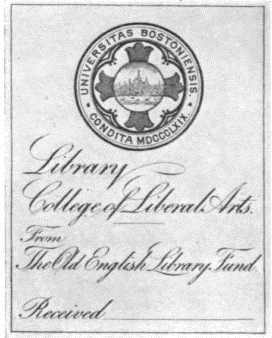 UNIVERSITAS BOSTONIENSIS.
CONDITA MDCCCLXIX.
Library
College of Liberal Arts.
From
The Old English Library Fund.
Received